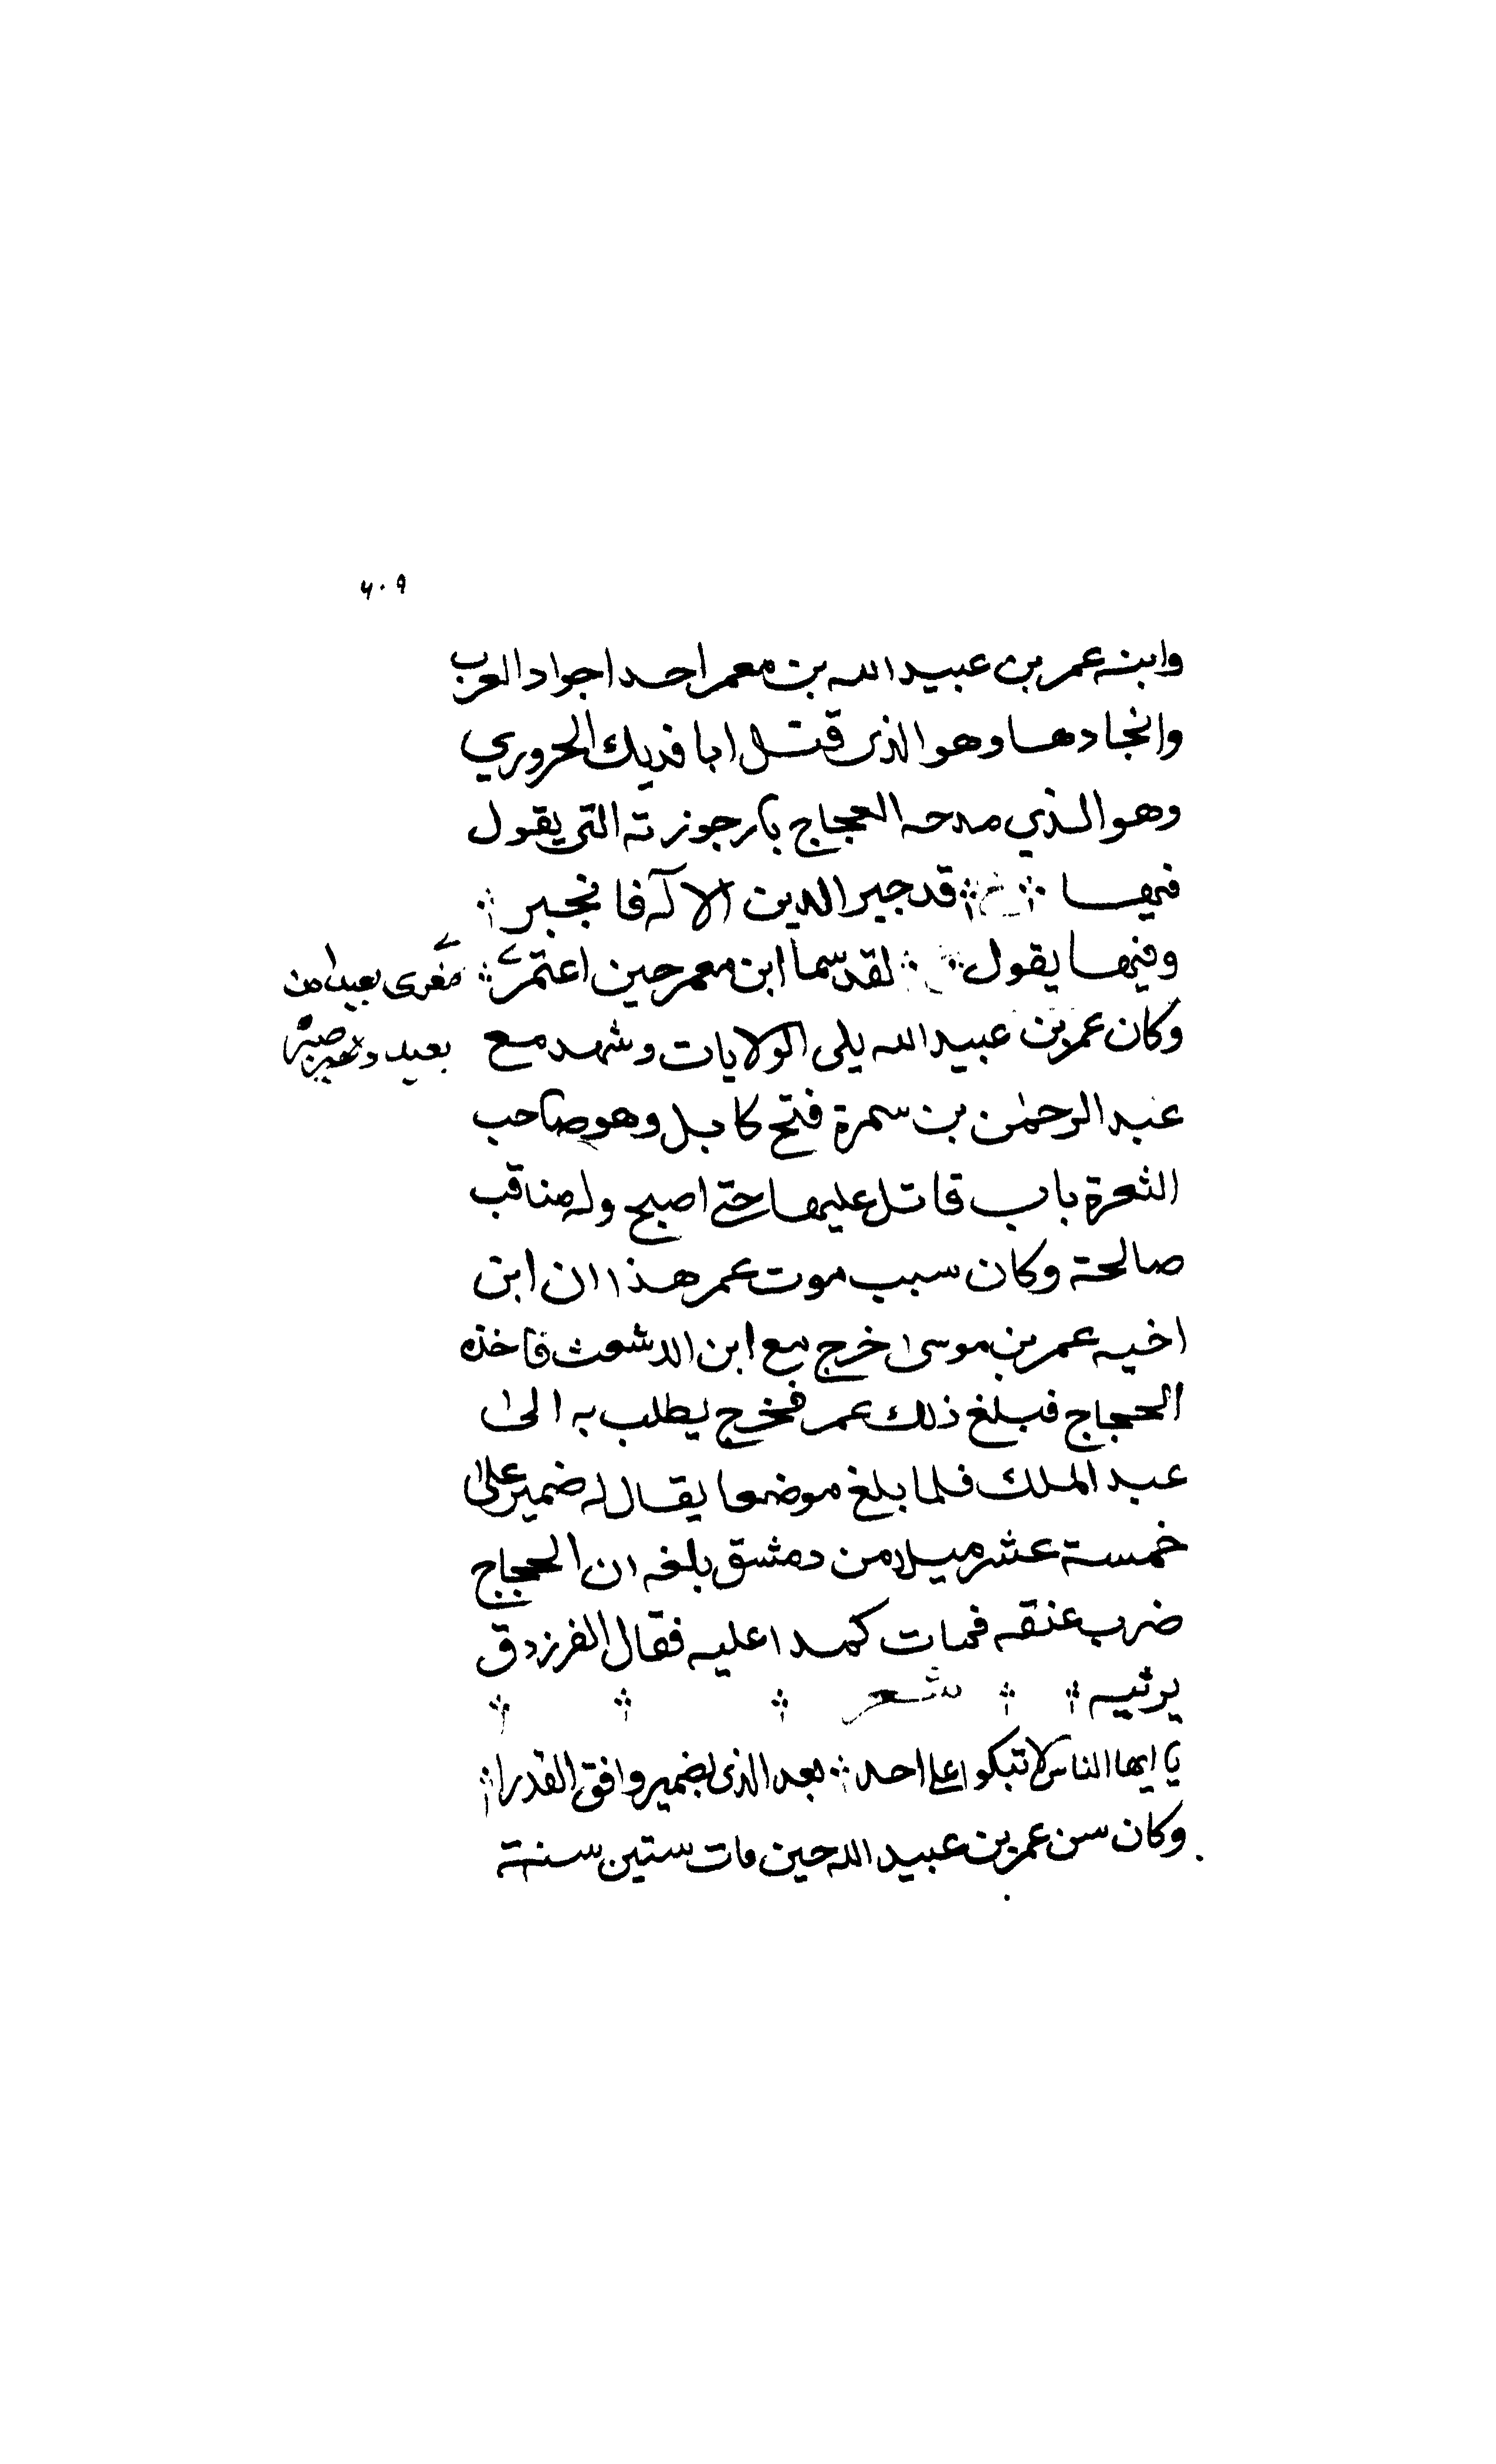 ٦٠٩
وابنه عمر بن عبيد الله بن معمر احد اجواد العرب
وانجادها وهو الذى قتل ابا فديك الحروري
وهو الذي مدحه العجاج بارجوزته التى يقول
فيها قد جبر الدين الاله فانجبر
وفيها يقول لقد سما ابن معمر حين اعتمر
مغزى بعيدا من
بعيد وضبر
وكان عمر بن عبيد الله يلى الولايات وشهد مع
عبد الرحمٰن بن سمرة فتح كابل وهو صاحب
الثعرة باب قاتل عليها حتى اصبح وله مناقب
صالحة وكان سبب موت عمر هذا ان ابن
اخيه عمر بن موسى خرج مع ابن الاشعث فاخذه
الحجاج فبلغ ذلك عمر فخرج يطلب به الى
عبد الملك فلما بلغ موضعا يقال له ضمير على
خمسة عشر ميلا من دمشق بلغه ان الحجاج
ضرب عنقه فمات كمدا عليه فقال الفرزدق
يرثيه شعر
يا ايها الناس لا تبكوا على احد بعد الذى بضمير وافق القدرا
وكان سن عمر بن عبيد الله حين مات ستين سنة